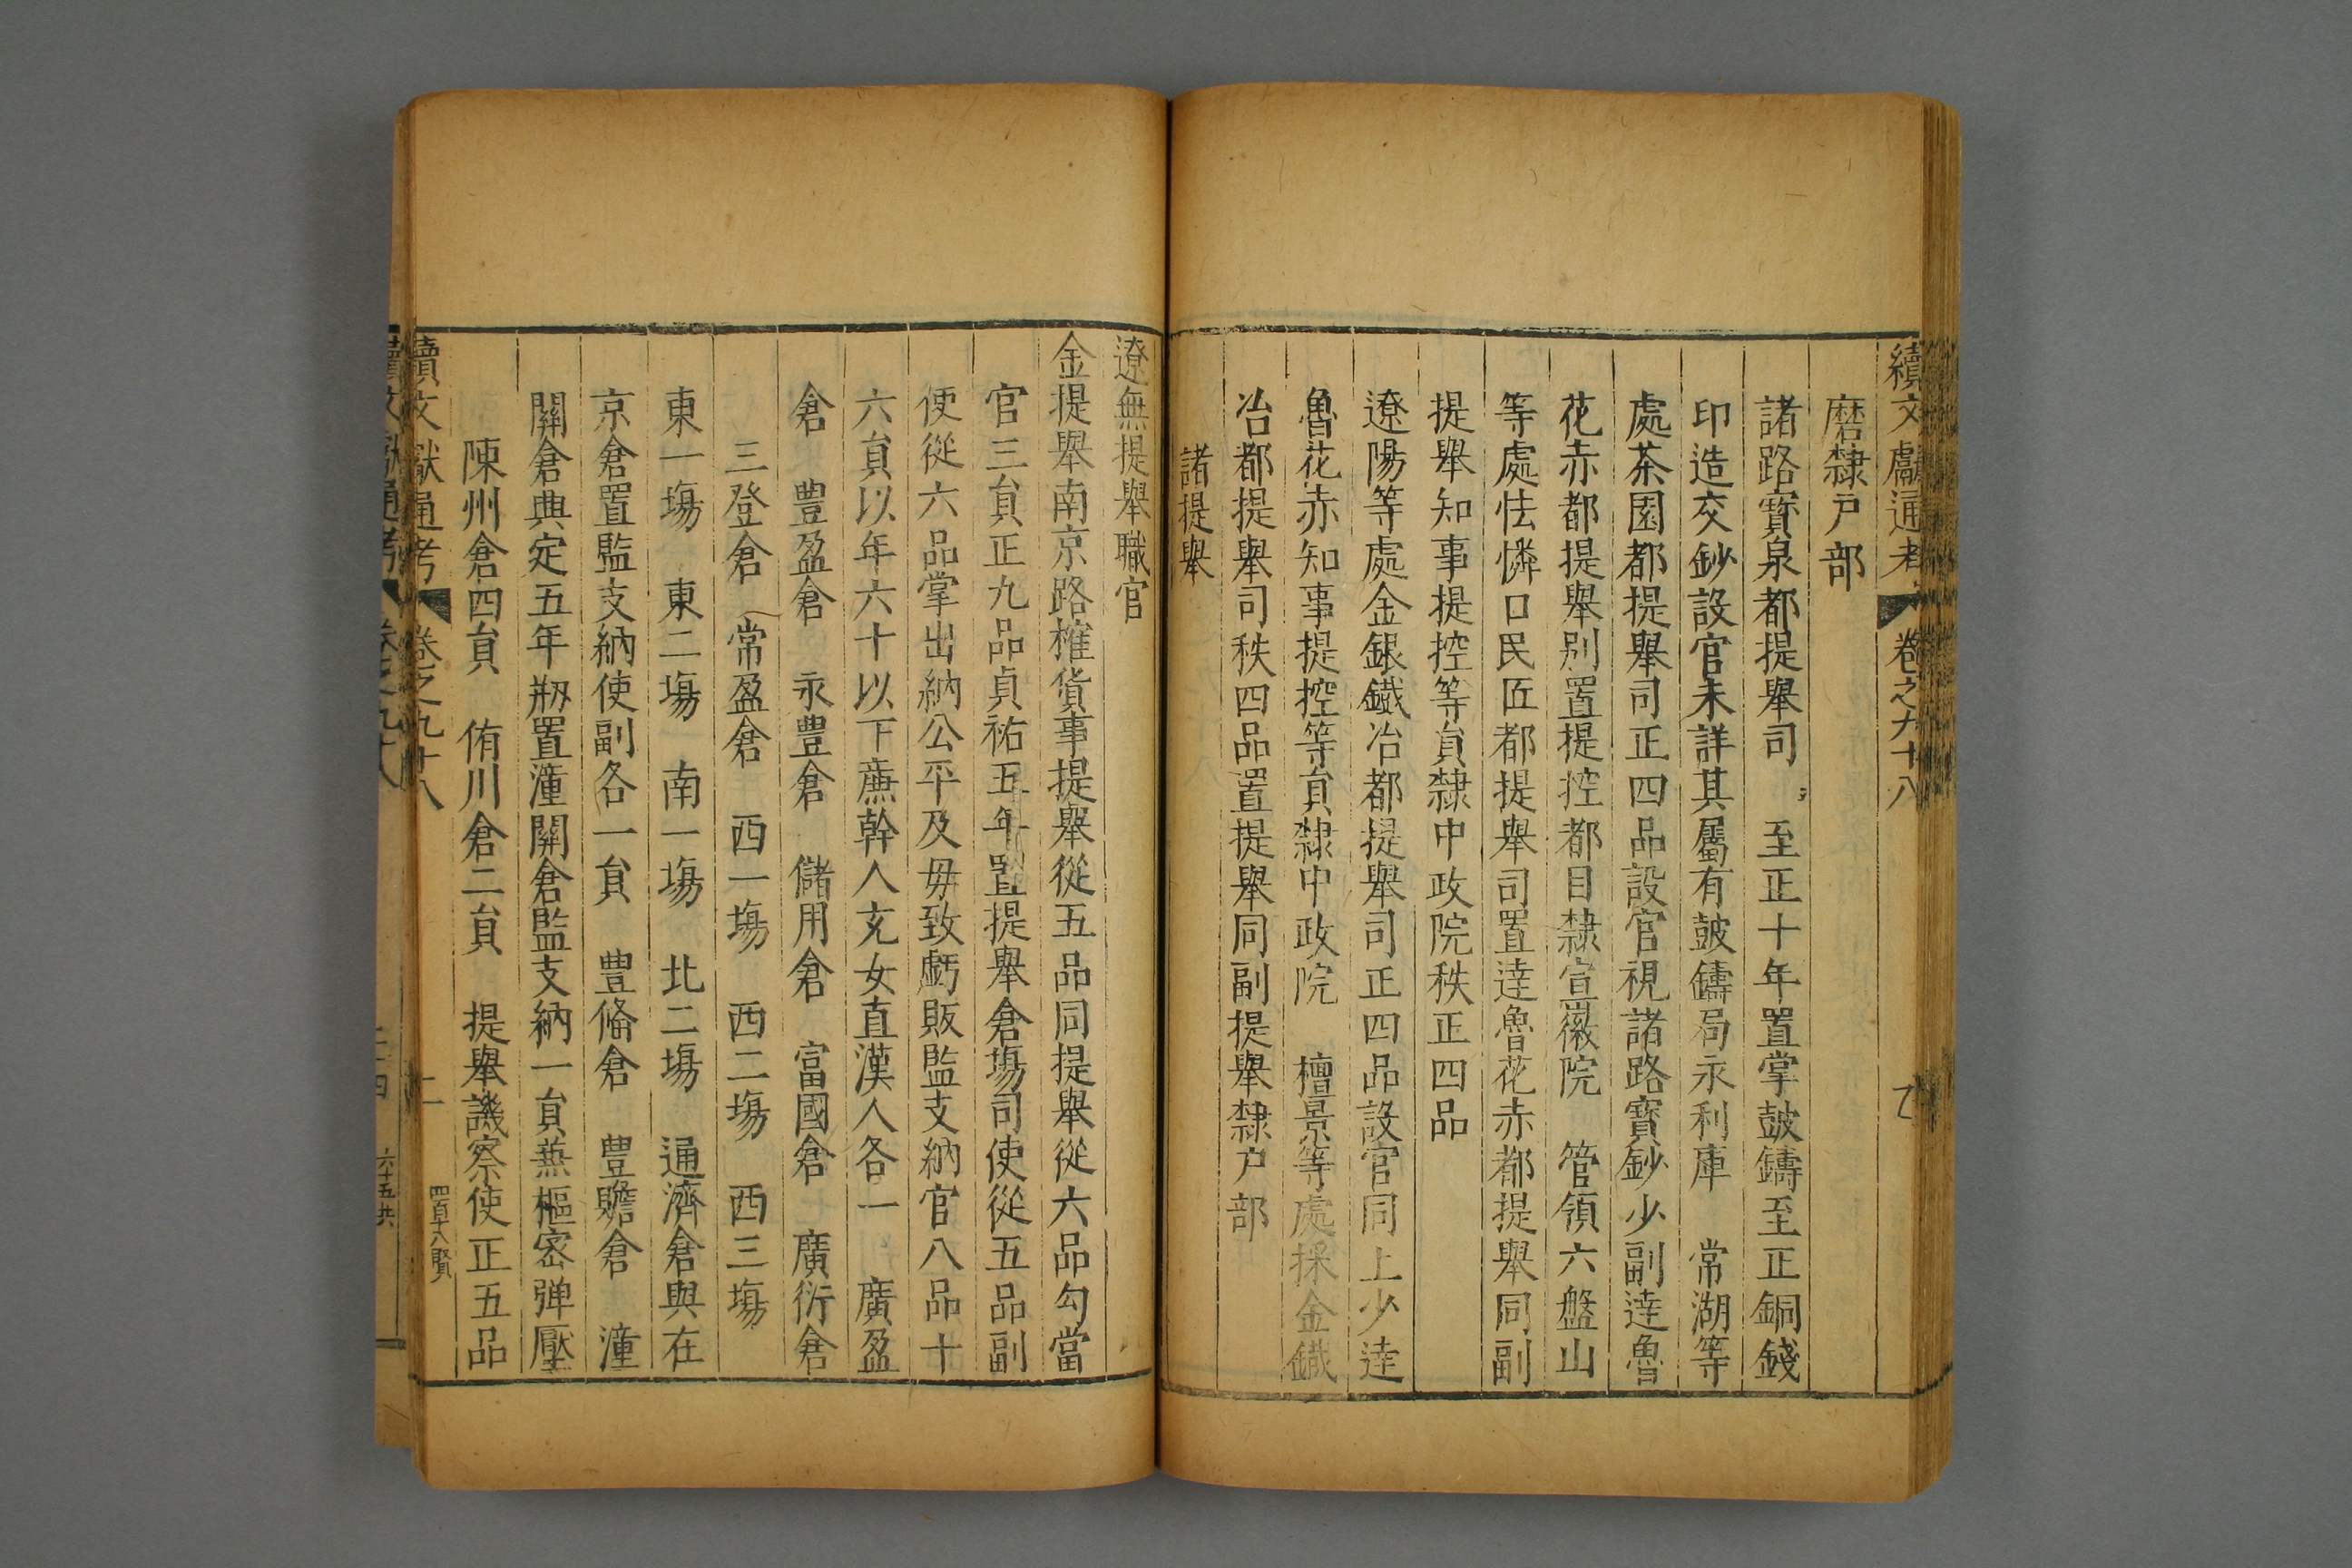 續文獻通考 卷之九十八
磨隸户部
諸路寳泉都提舉司 至正十年置掌鼓鑄至正銅錢
印造交鈔設官未詳其屬有鼓鑄局永利庫 常湖等
處茶園都提舉司正四品設官視諸路寳鈔少副逹魯
花赤都提舉别置提控都目隸宣徽院 管領六盤山
等處怯憐口民匠都提舉司置逹魯花赤都提舉同副
提舉知事提控等員隸中政院秩正四品
遼陽等處金銀鐵冶都提舉司正四品設官同上少逹
魯花赤知事提控等員隸中政院 檀景等處採金鐵
冶都提舉司秩四品置提舉同副提舉隸户部
諸提舉
遼無提舉職官
金提舉南京路榷貨事提舉從五品同提舉從六品勾當
官三員正九品貞祐五年置提舉倉塲司使從五品副
使從六品掌出納公平及毋致虧販監支納官八品十
六員以年六十以下亷幹人充女直漢人各一 廣盈
倉 豊盈倉 永豊倉 儲用倉 富國倉 廣衍倉
三登倉 常盈倉 西一塲 西二塲 西三塲
東一塲 東二塲 南一塲 北二塲 通濟倉與在
京倉置監支納使副各一員 豊備倉 豊贍倉 潼
關倉典定五年剏置潼關倉監支納一員兼樞密弹壓
陳州倉四員 侑川倉二員 提舉譏察使正五品
續文獻通考 卷之九十八 二
四百十八賢